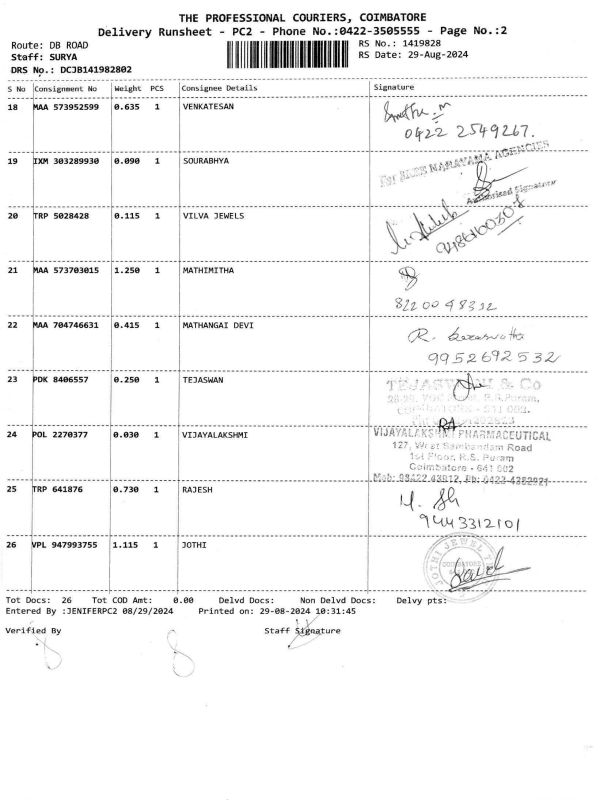 THE PROFESSIONAL COURIERS, COIMBATORE
Delivery Runsheet - PC2 - Phone No.:0422-3505555 - Page No.:2
Route: DB ROAD
RS No.: 1419828
Staff: SURYA
RS Date: 29-Aug-2024
DRS No.: DCJB141982802
S No Consignment No Weight PCS Consignee Details Signature
18 MAA 573952599 0.635 1 VENKATESAN
0422 2549267.
19 IXM 303289930 0.090 1 SOURABHYA
For SREE NARAYANA AGENCIES
Authorised Signatory
20 TRP 5028428 0.115 1 VILVA JEWELS
21 MAA 573703015 1.250 1 MATHIMITHA
8220098312
22 MAA 704746631 0.415 1 MATHANGAI DEVI
R.
9952692532
23 PDK 8406557 0.250 1 TEJASWAN
& Co
R.S.Puram,
24 POL 2270377 0.030 1 VIJAYALAKSHMI
VIJAYALAKSHMI PHARMACEUTICAL
127, West Sambandam Road
1st Floor, R.S. Puram
Coimbatore - 641 002
25 TRP 641876 0.730 1 RAJESH
9443312101
26 VPL 947993755 1.115 1 JOTHI
JOTHI JEWEL
COIMBATORE
Tot Docs: 26 Tot COD Amt: 0.00 Delvd Docs: Non Delvd Docs: Delvy pts:
Entered By :JENIFERPC2 08/29/2024 Printed on: 29-08-2024 10:31:45
Verified By Staff Signature